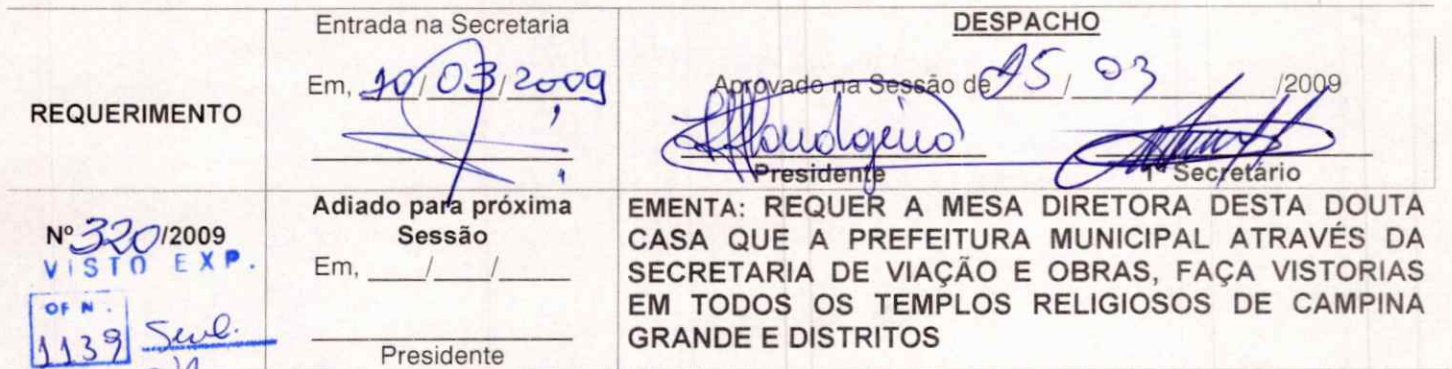 REQUERIMENTO
Entrada na Secretaria
Em, 10/03/2009
DESPACHO
Aprovado na Sessão de 25/ 03 /2009
Presidente
1º Secretário
Nº 320/2009
VISTO EXP.
OF N.
1139
Adiado para próxima
Sessão
Em, ____/____/____
Presidente
EMENTA: REQUER A MESA DIRETORA DESTA DOUTA
CASA QUE A PREFEITURA MUNICIPAL ATRAVÉS DA
SECRETARIA DE VIAÇÃO E OBRAS, FAÇA VISTORIAS
EM TODOS OS TEMPLOS RELIGIOSOS DE CAMPINA
GRANDE E DISTRITOS